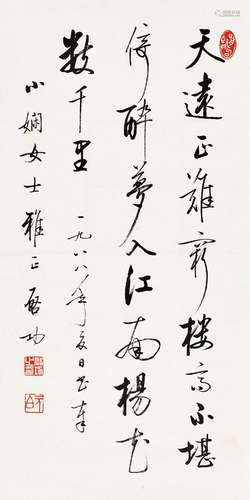 天遠正難窮樓高不堪
倚醉夢入江南楊花
數千里
一九八八年夏日書奉
小嫻女士雅正 啟功